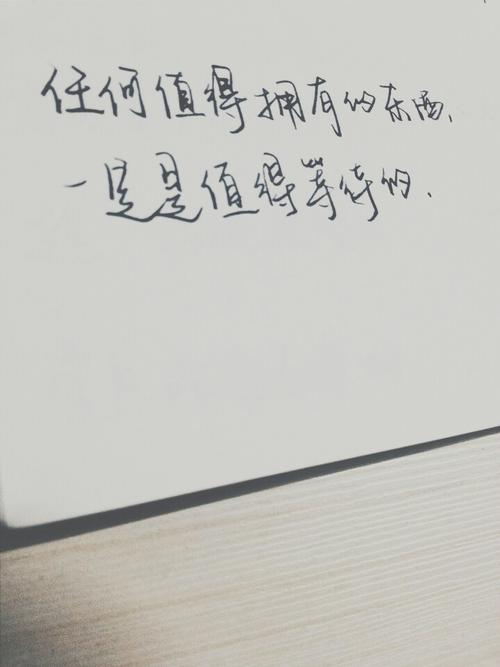 任何值得拥有的东西、
一直是值得等待的.